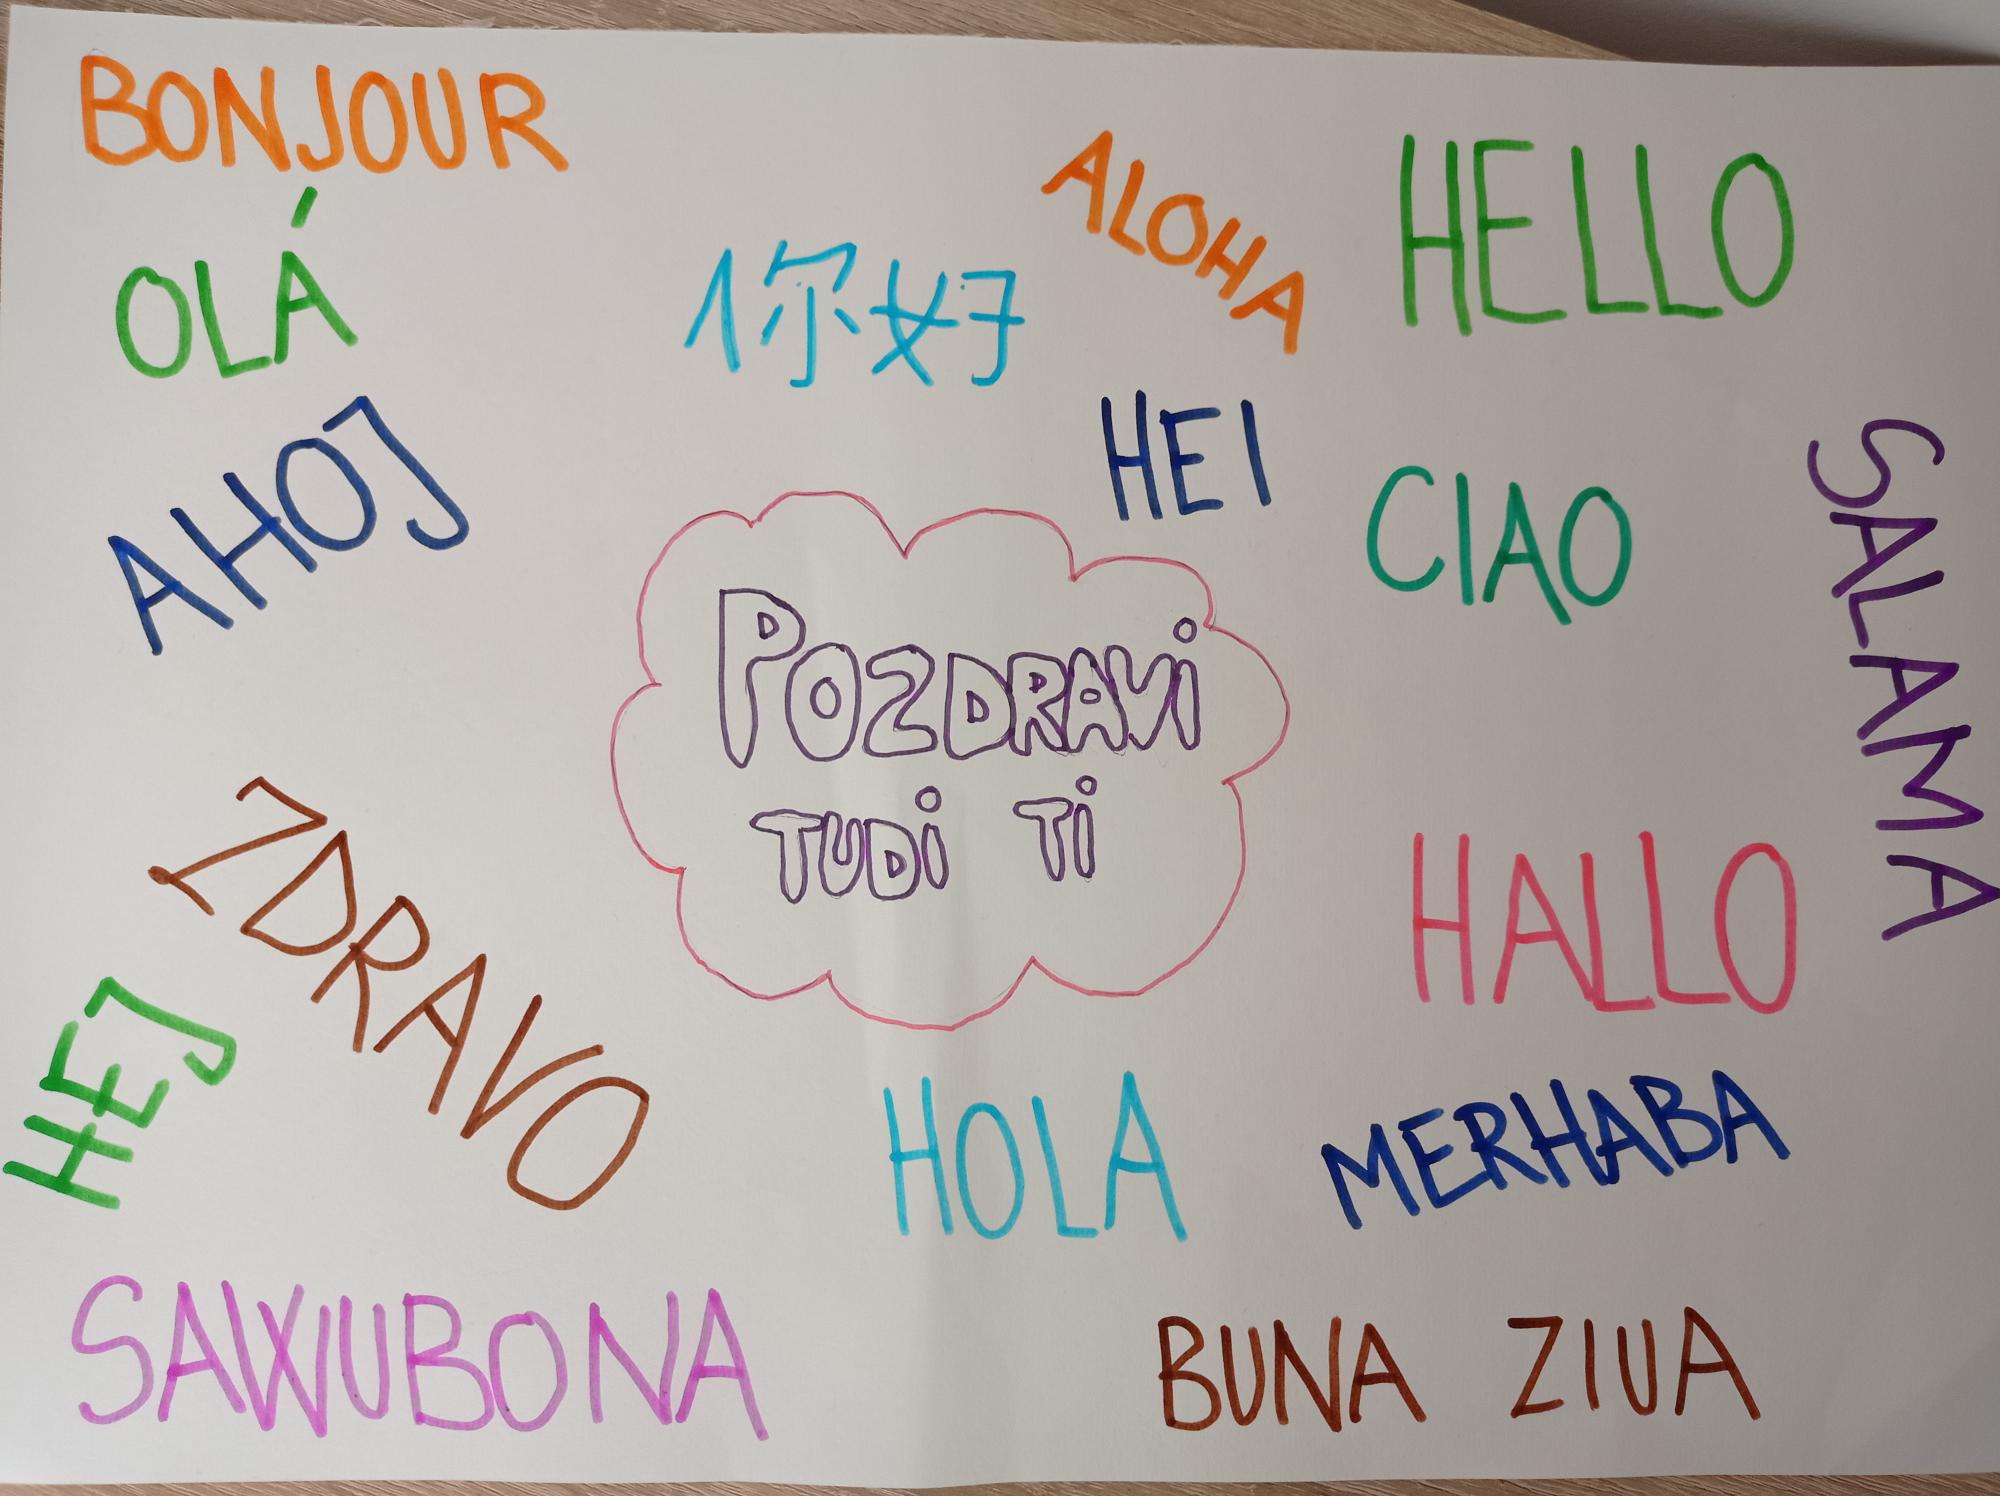 BONJOUR
OLÁ
AHOJ
你好
ALOHA
HELLO
HEI
CIAO
SALAMA
POZDRAVi
TUDi Ti
ZDRAVO
HEJ
HALLO
HOLA
MERHABA
SAWUBONA
BUNA ZIUA